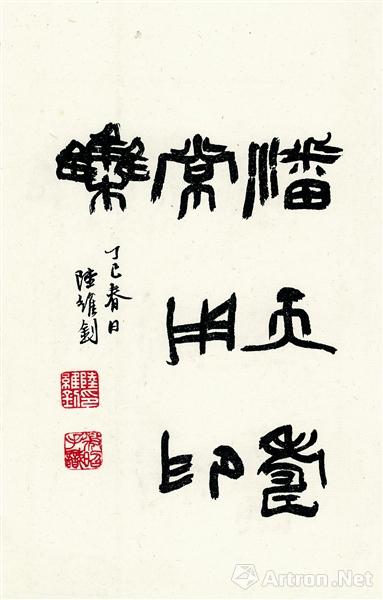 潘天壽
常用印
集
丁巳春日
陸維釗
陸印維釗
Artron.Net